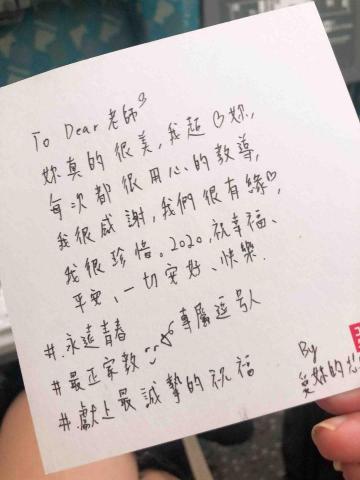 To Dear 老師
妳真的很美,我超♡妳,
每次都很用心的教導,
我很感謝,我們很有緣♡,
我很珍惜。2020,祝幸福、
平安、一切安好、快樂.
#.永遠青春
專屬逗号人
#最正家教
#.獻上最誠摯的祝福
By
愛妳的